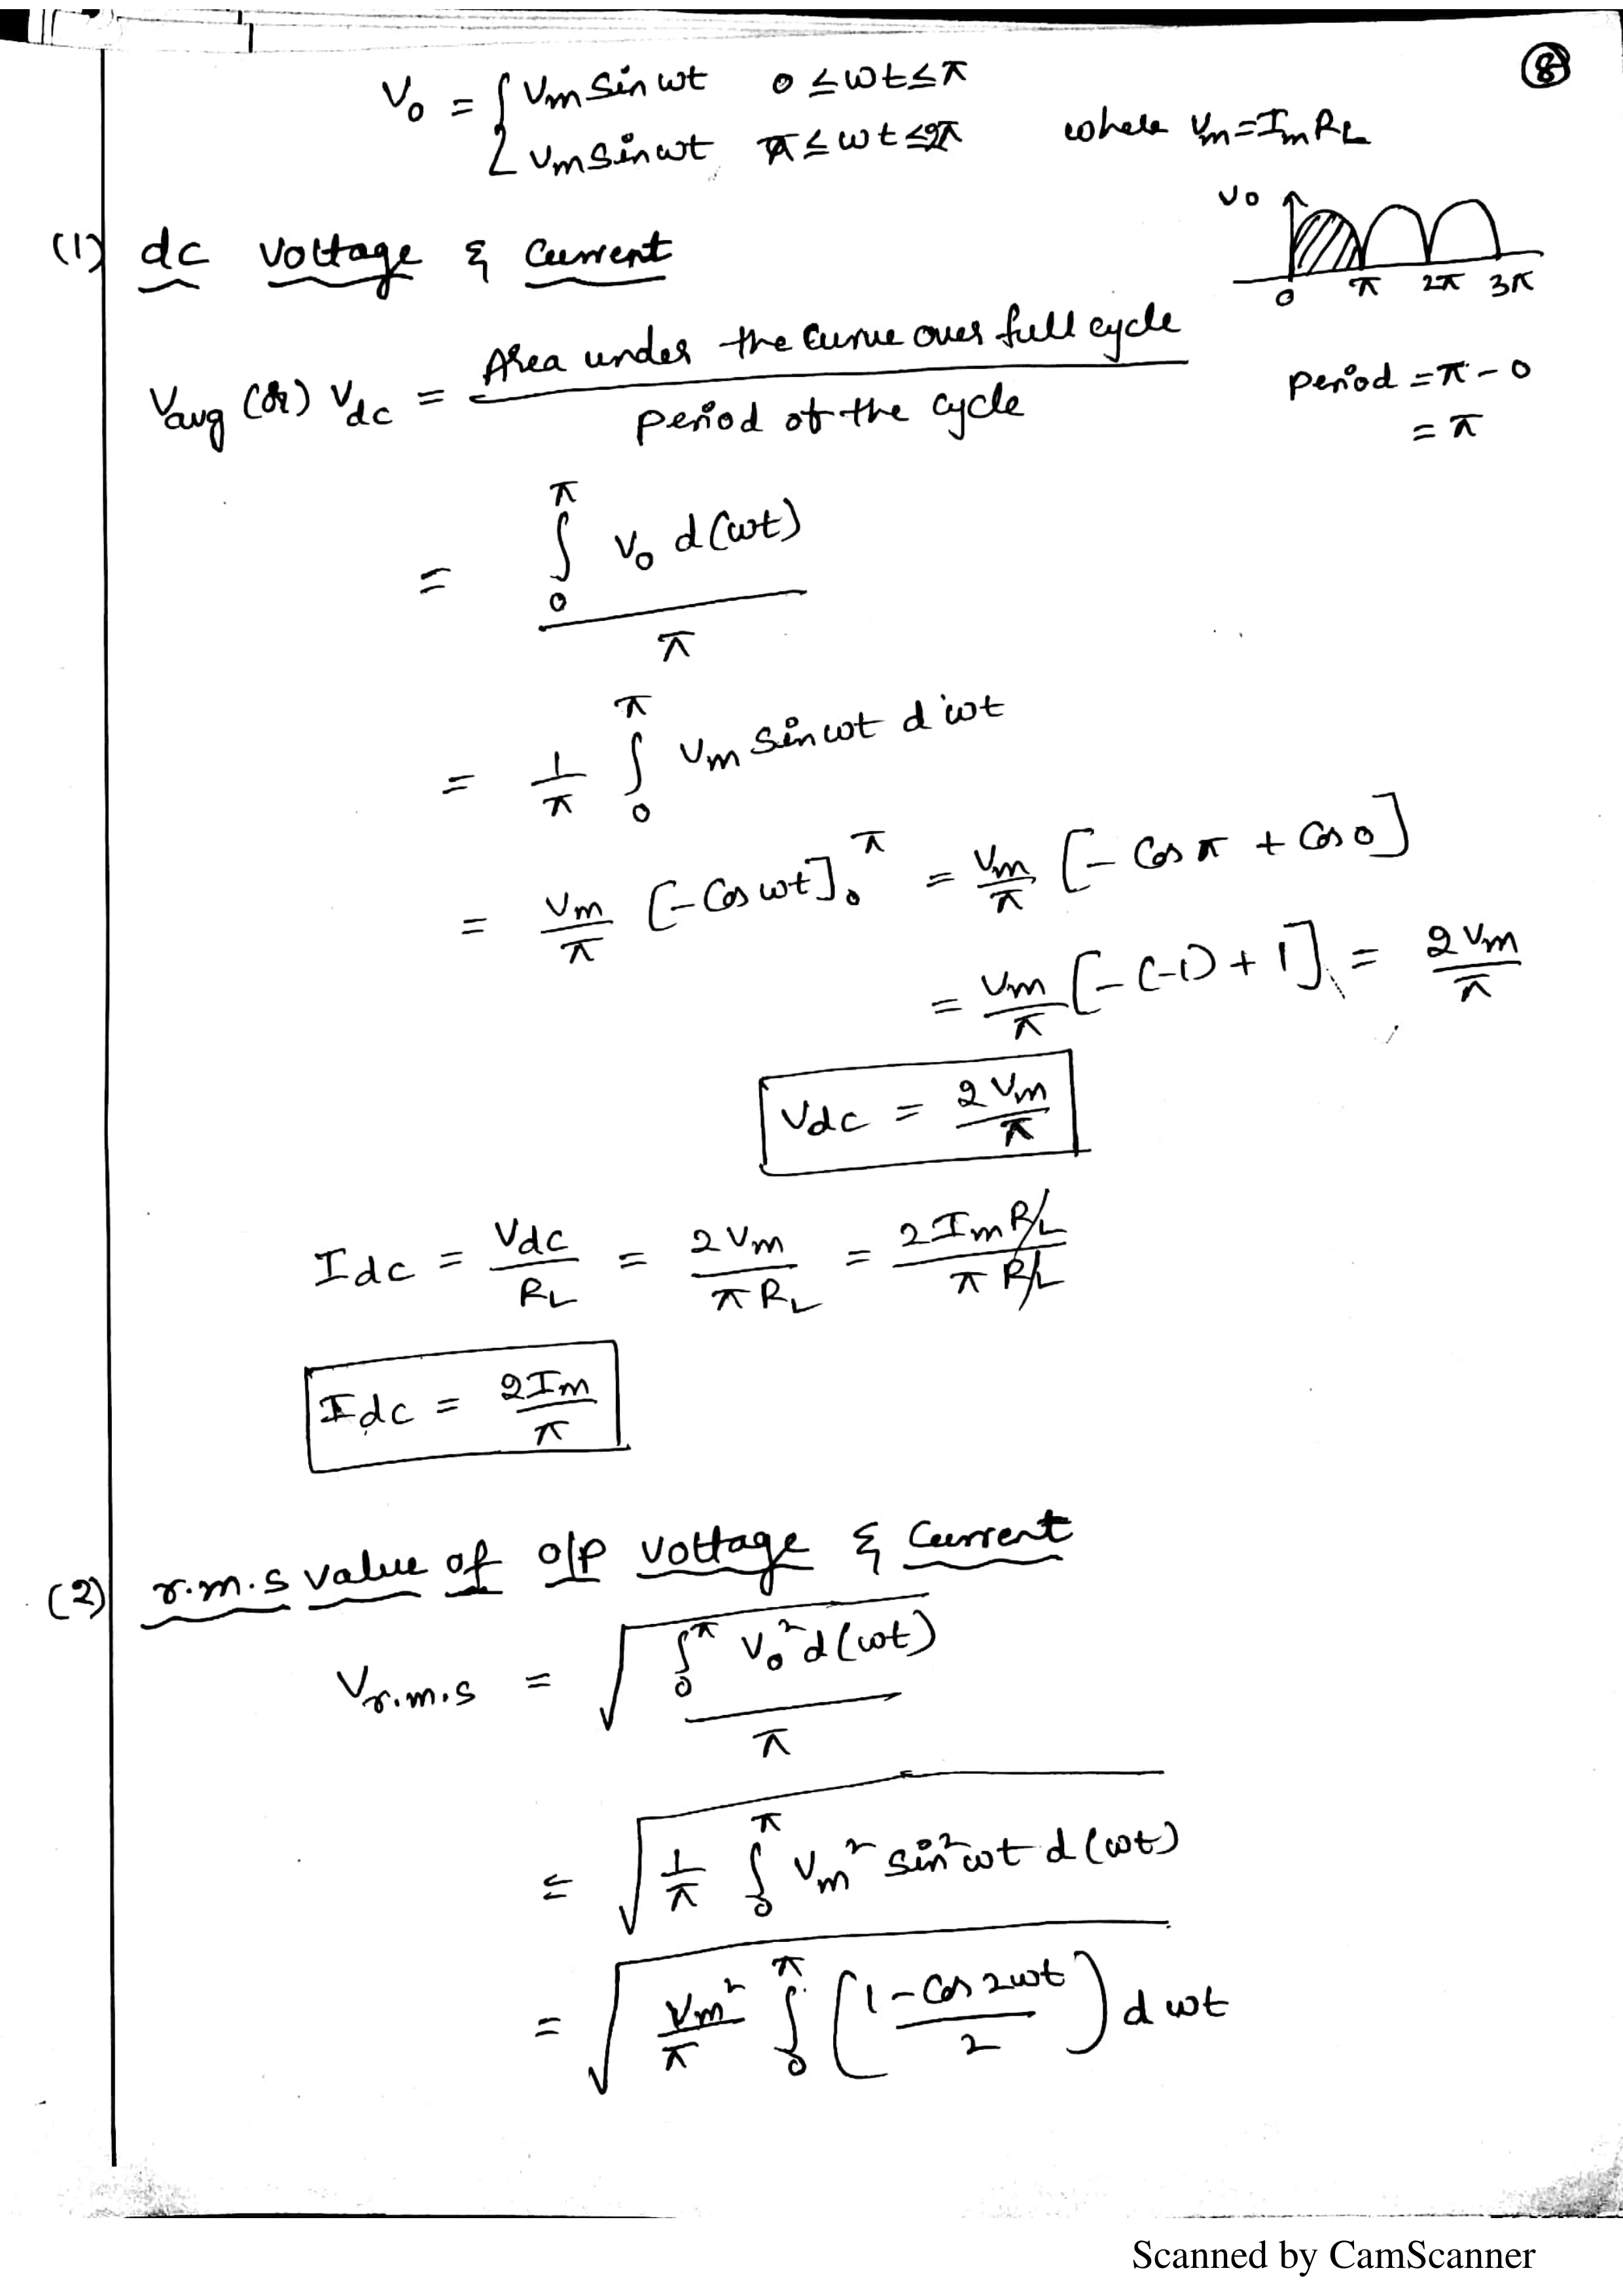 ⑧
V₀ = { Vm Sin ωt   0 ≤ ωt ≤ π
Vm Sin ωt   π ≤ ωt ≤ 2π   where Vm = Im RL
(1) dc voltage & Current
V₀
0 π 2π 3π
Vavg (or) Vdc = Area under the curve over full cycle / Period of the cycle
Period = π - 0
= π
= ∫₀^π V₀ d(ωt) / π
= 1/π ∫₀^π Vm Sin ωt dωt
= Vm/π [-Cos ωt]₀^π = Vm/π [- Cos π + Cos 0]
= Vm/π [-(-1) + 1] = 2Vm/π
Vdc = 2Vm/π
Idc = Vdc/RL = 2Vm/πRL = 2ImRL/πRL
Idc = 2Im/π
(2) r.m.s value of o/p voltage & Current
Vr.m.s = √(∫₀^π V₀² d(ωt) / π)
= √(1/π ∫₀^π Vm² sin² ωt d(ωt))
= √(Vm²/π ∫₀^π ((1 - Cos 2ωt)/2) dωt)
Scanned by CamScanner